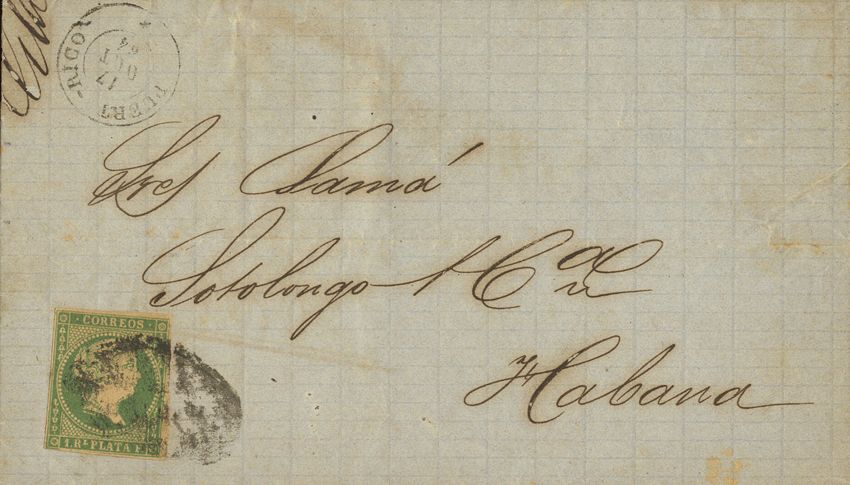 PUERT -RICO
17
OCT
64
Sres Samá
Sotolongo y Cª
Habana
CORREOS
1. Rl PLATA F.